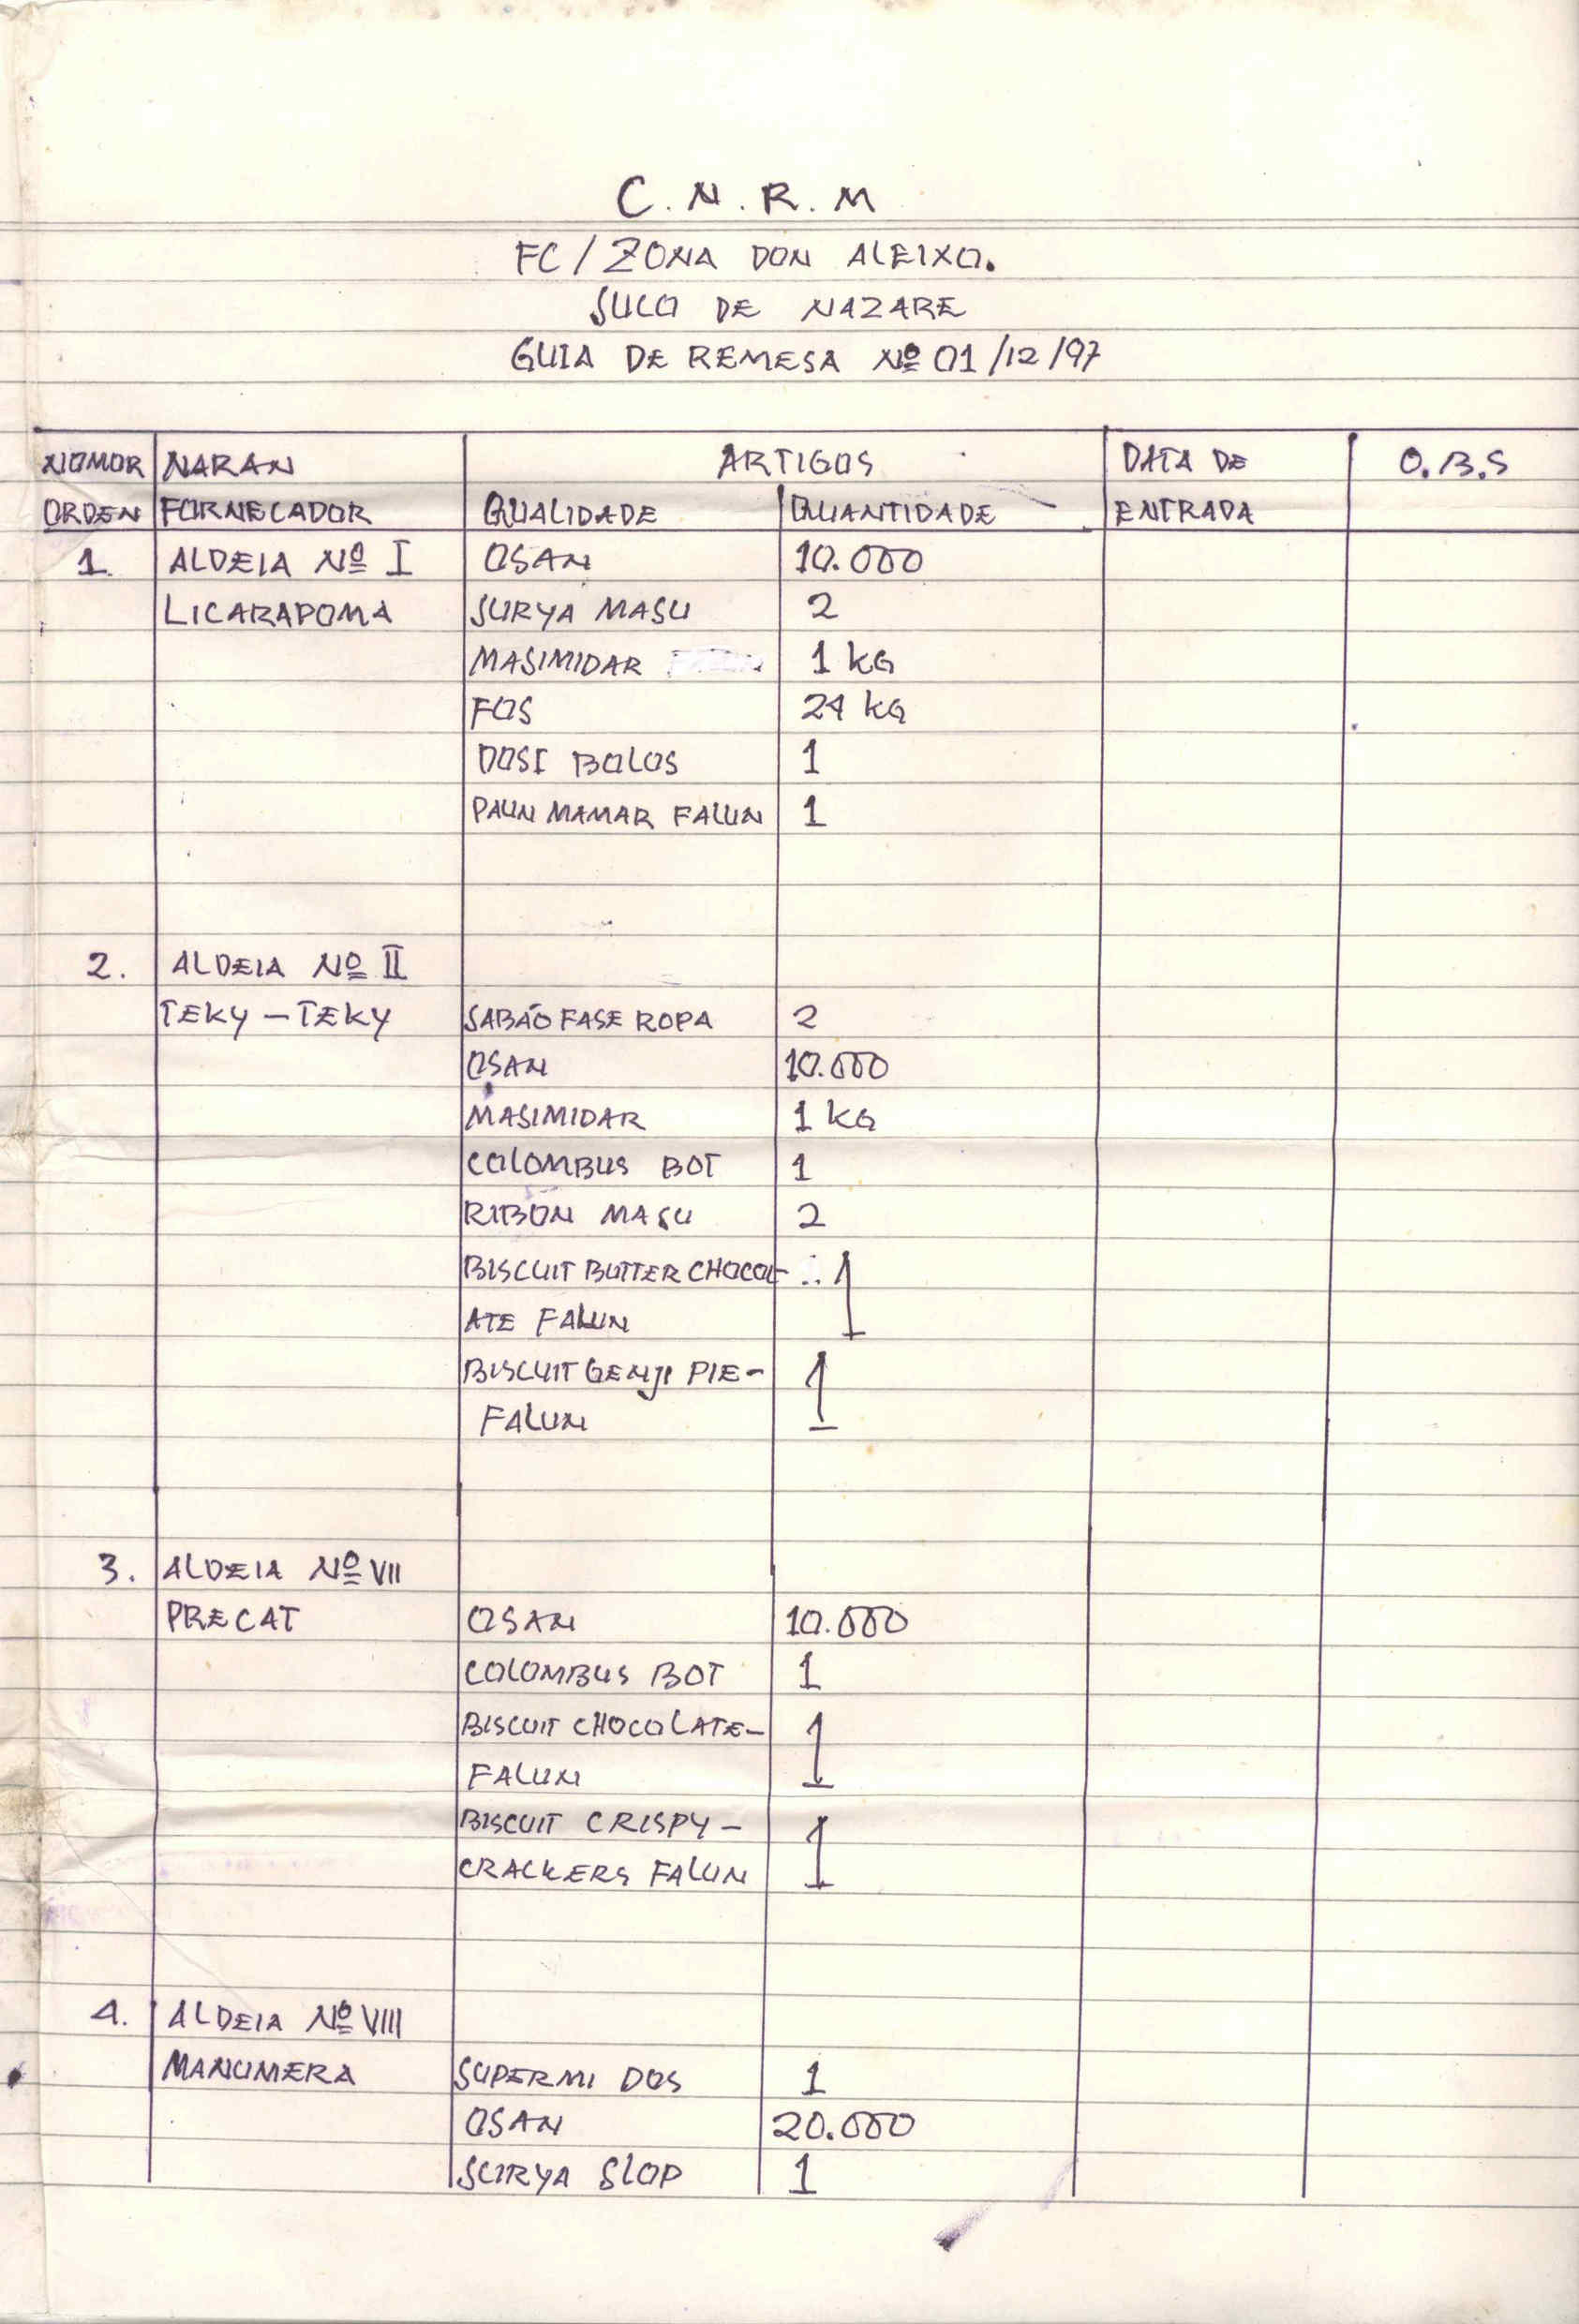 C.N.R.M
FC/ZONA DON ALEIXO.
SUCO DE NAZARE
GUIA DE REMESA Nº 01/12/97
NOMOR NARAN ARTIGOS DATA DE O.B.S
ORDEN FORNECADOR QUALIDADE QUANTIDADE ENTRADA
1. ALDEIA Nº I OSAN 10.000
LICARAPOMA SURYA MASU 2
MASIMIDAR 1 KG
FOS 24 KG
DOSI BOLOS 1
PAUN MAMAR FALUN 1
2. ALDEIA Nº II
TEKY-TEKY SABÃO FASE ROPA 2
OSAN 10.000
MASIMIDAR 1 KG
COLOMBUS BOT 1
RIBON MASU 2
BISCUIT BUTTER CHOCOL- 1
ATE FALUN
BISCUIT GENJI PIE- 1
FALUN
3. ALDEIA Nº VII
PRECAT OSAN 10.000
COLOMBUS BOT 1
BISCUIT CHOCOLATE- 1
FALUN
BISCUIT CRISPY- 1
CRACKERS FALUN
4. ALDEIA Nº VIII
MANUMERA SUPERMI DOS 1
OSAN 20.000
SURYA SLOP 1